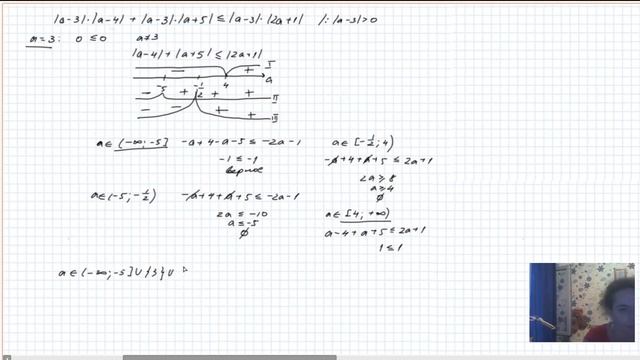 |a-3|·|a-4| + |a-3|·|a+5| ≤ |a-3|·|2a+1| /:|a-3|>0
a=3: 0 ≤ 0 a≠3
|a-4| + |a+5| ≤ |2a+1|
− + I
a
-5 -1/2 4
− + + + II
− − + + III
a∈(-∞;-5] -a+4-a-5 ≤ -2a-1
-1 ≤ -1
верное
a∈(-5;-1/2) -a+4+a+5 ≤ -2a-1
2a ≤ -10
a ≤ -5
∅
a∈[-1/2;4)
-a+4+a+5 ≤ 2a+1
2a ≥ 8
a ≥ 4
∅
a∈[4;+∞)
a-4+a+5 ≤ 2a+1
1 ≤ 1
a∈(-∞;-5]∪{3}∪